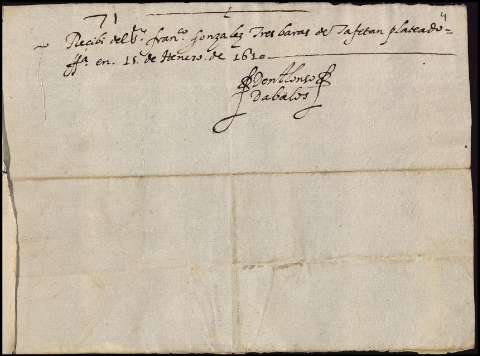 71
4
Recibi del Sr. franco. Gonzalez Tres baras de Tafetan plateado=
ffa. en. 15. de Henero. de 1610
Don Alonso
Dabalos